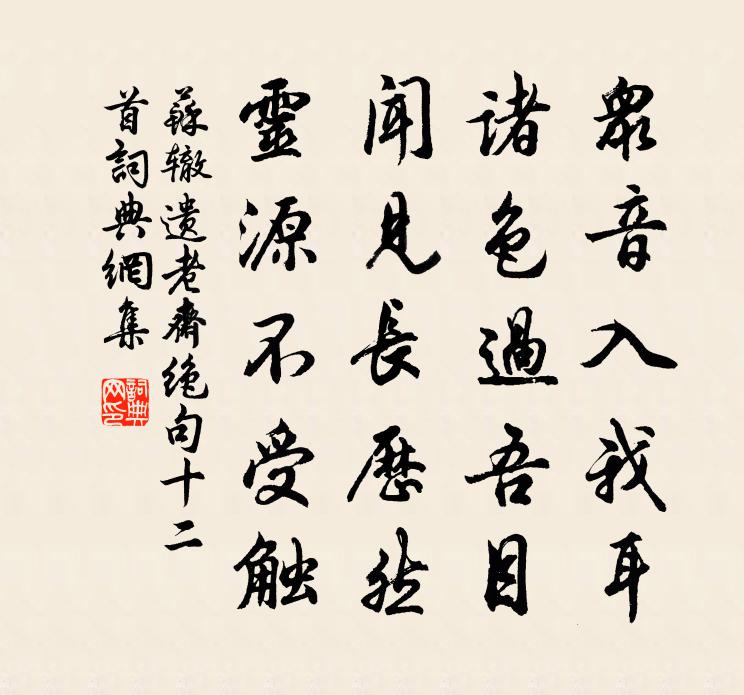 眾音入我耳
諸色過吾目
聞見長歷然
靈源不受触
蘇辙遗老齋绝句十二
首詞典網集
詞典
网印